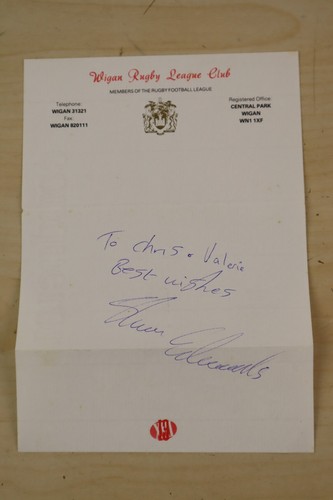 Wigan Rugby League Club
MEMBERS OF THE RUGBY FOOTBALL LEAGUE
Telephone:
WIGAN 31321
Fax:
WIGAN 820111
Registered Office:
CENTRAL PARK
WIGAN
WN1 1XF
To Chris & Valerie
Best wishes
Shaun Edwards